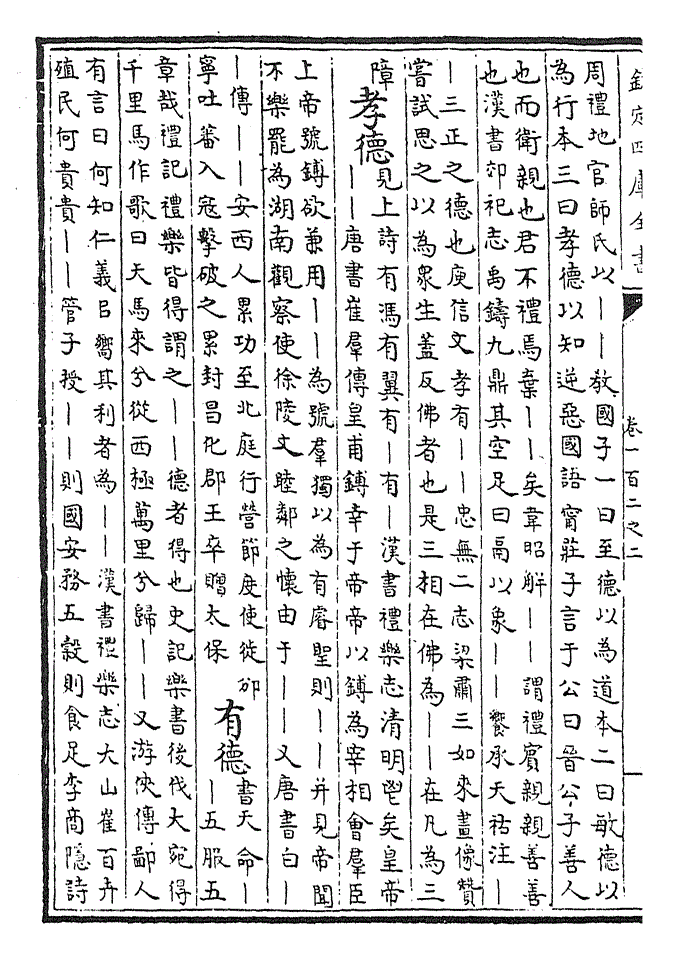 欽定四庫全書
卷一百二之二
周禮地官師氏以——教國子一曰至德以為道本二曰敏德以
為行本三曰孝德以知逆惡國語甯莊子言于公曰晉公子善人
也而衛親也君不禮焉棄——矣韋昭解——謂禮賓親親善善
也漢書郊祀志禹鑄九鼎其空足曰鬲以象——饗承天祜注—
—三正之德也庾信文孝有——忠無二志梁肅三如來畫像贊
嘗試思之以為衆生蓋反佛者也是三相在佛為——在凡為三
障
孝德
見上詩有馮有翼有—有—漢書禮樂志清明鬯矣皇帝
——唐書崔羣傳皇甫鎛幸于帝帝以鎛為宰相會羣臣
上帝號鎛欲兼用——為號羣獨以為有睿聖則——并見帝聞
不樂罷為湖南觀察使徐陵文睦鄰之懷由于——又唐書白—
—傳——安西人累功至北庭行營節度使徙邠
寧吐蕃入寇擊破之累封昌化郡王卒贈太保
有德
書天命—
—五服五
章哉禮記禮樂皆得謂之——德者得也史記樂書後伐大宛得
千里馬作歌曰天馬來兮從西極萬里兮歸——又游俠傳鄙人
有言曰何知仁義㠯嚮其利者為——漢書禮樂志大山崔百卉
殖民何貴貴——管子授——則國安務五穀則食足李商隱詩